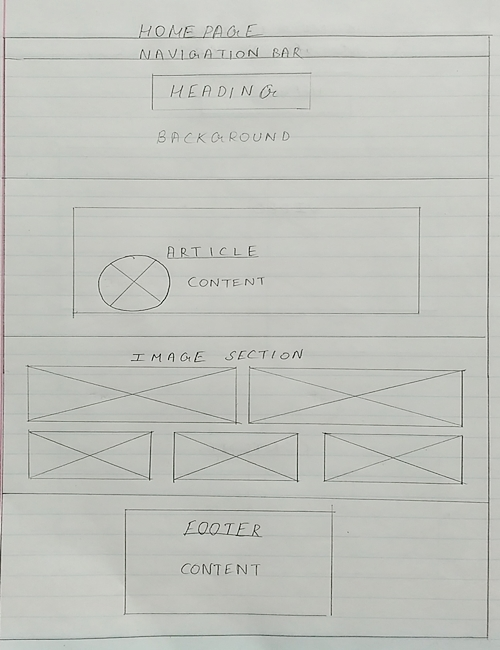 HOME PAGE
NAVIGATION BAR
HEADING
BACKGROUND
ARTICLE
CONTENT
IMAGE SECTION
FOOTER
CONTENT